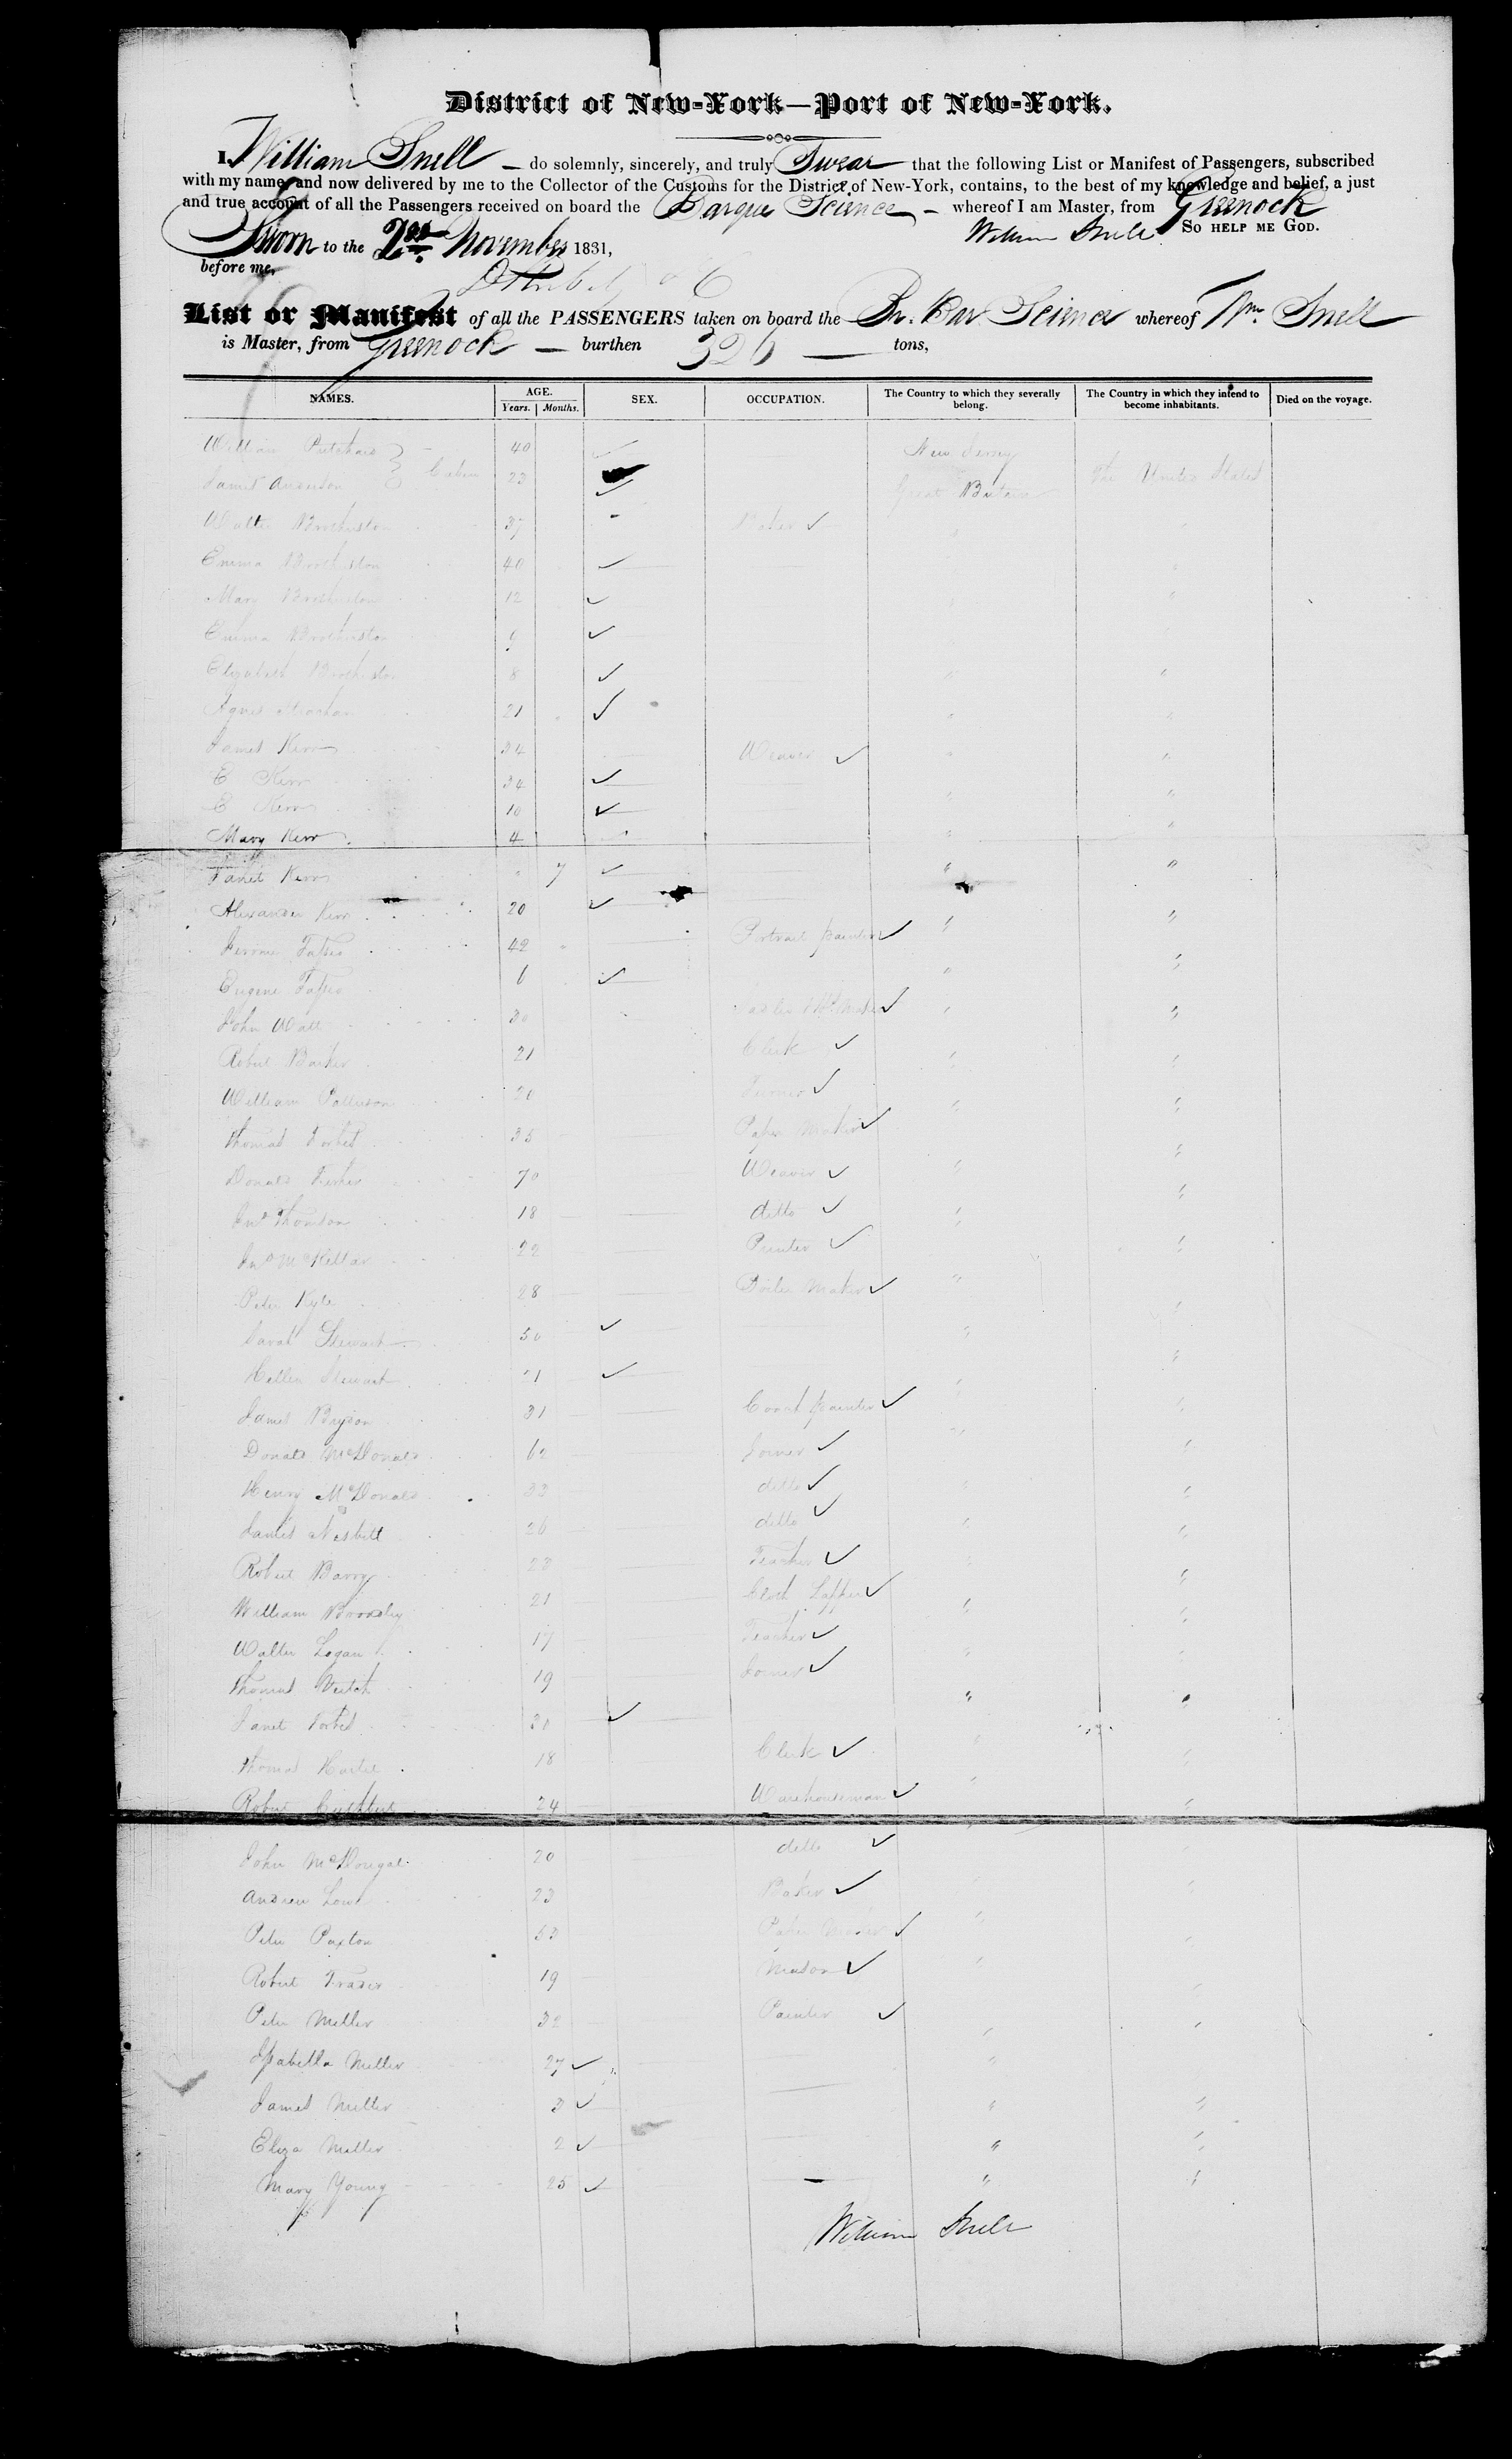 District of New-York—Port of New-York.
I, William Snell — do solemnly, sincerely, and truly Swear that the following List or Manifest of Passengers, subscribed
with my name, and now delivered by me to the Collector of the Customs for the District of New-York, contains, to the best of my knowledge and belief, a just
and true account of all the Passengers received on board the Barque Science — whereof I am Master, from Greenock
Sworn to the 2nd November 1831, William Snell So help me God.
before me,
List or Manifest of all the PASSENGERS taken on board the Br. Bar Science whereof Wm Snell
is Master, from Greenock — burthen 326 — tons,
NAMES. AGE. Years. Months. SEX. OCCUPATION. The Country to which they severally belong. The Country in which they intend to become inhabitants. Died on the voyage.
William 40 New Jersey
James Anderson Cabin 23 Great Britain The United States
Walter 37 Baker
Emma 40
Mary 12
Emma 9
Elizabeth 8
Agnes 21
James Kerr 34 Weaver
E Kerr 34
E Kerr 10
Mary Kerr 4
Janet Kerr 7
Alexander Kerr 20
42 Portrait painter
Eugene 6
John Watt 30
Robert Barker 21 Clerk
William Patterson 20
Thomas Forbes 35 Paper Maker
Donald Fisher 70 Weaver
Jno Thomson 18 ditto
Jno McKellar 22 Printer
Peter Kyle 28 Boiler Maker
Sarah Stewart 50
Hellen Stewart 21
James Bryson 31 Coach painter
Donald McDonald 62 Joiner
Henry McDonald 33 ditto
James Nesbitt 26 ditto
Robert Barry 23 Teacher
William 21 Cloth Lapper
Walter Logan 17 Teacher
Thomas Veitch 19 Joiner
Janet Forbes 30
Thomas 18 Clerk
Robert 24 Warehouseman
John McDougal 20 ditto
Andrew Low 23 Baker
Peter Paxton 53 Paper Maker
Robert Fraser 19 Mason
Peter Miller 32 Painter
Isabella Miller 27
James Miller 3
Eliza Miller 2
Mary Young 25
William Snell